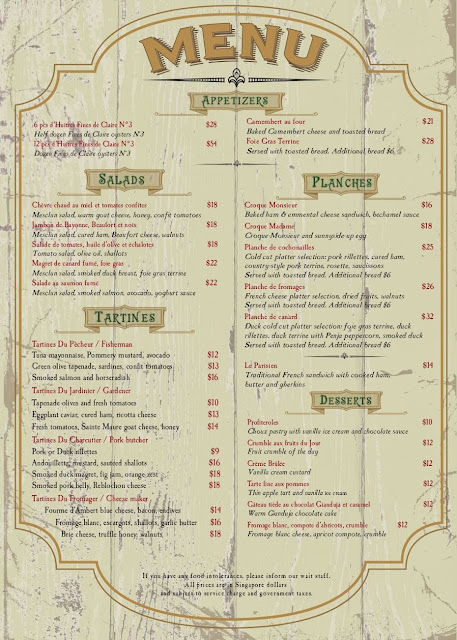 MENU
APPETIZERS
6 pcs d'Huitres Fines de Claire N°3 $28
Half dozen Fines de Claire oysters N'3
12 pcs d'Huitres Fines de Claire N°3 $54
Dozen Fines de Claire oysters N'3
Camembert au four $21
Baked Camembert cheese and toasted bread
Foie Gras Terrine $28
Served with toasted bread. Additional bread $6
SALADS
Chèvre chaud au miel et tomates confites $18
Mesclun salad, warm goat cheese, honey, confit tomatoes
Jambon de Bayonne, Beaufort et noix $18
Mesclun salad, cured ham, Beaufort cheese, walnuts
Salade de tomates, huile d'olive et échalotes $18
Tomato salad, olive oil, shallots
Magret de canard fumé, foie gras $22
Mesclun salad, smoked duck breast, foie gras terrine
Salade au saumon fumé $22
Mesclun salad, smoked salmon, avocado, yoghurt sauce
TARTINES
Tartines Du Pêcheur / Fisherman
Tuna mayonnaise, Pommery mustard, avocado $12
Green olive tapenade, sardines, confit tomatoes $13
Smoked salmon and horseradish $16
Tartines Du Jardinier / Gardener
Tapenade olives and fresh tomatoes $10
Eggplant caviar, cured ham, ricotta cheese $13
Fresh tomatoes, Sainte Maure goat cheese, honey $14
Tartines Du Charcutier / Pork butcher
Pork or Duck rillettes $9
Andouillette, mustard, sautéed shallots $16
Smoked duck magret, fig jam, orange zest $18
Smoked pork belly, Reblochon cheese $18
Tartines Du Fromager / Cheese maker
Fourme d'Ambert blue cheese, bacon, endives $14
Fromage blanc, escargots, shallots, garlic butter $16
Brie cheese, truffle honey, walnuts $18
PLANCHES
Croque Monsieur $16
Baked ham & emmental cheese sandwich, bechamel sauce
Croque Madame $18
Croque Monsieur and sunny-side up egg
Planche de cochonailles $25
Cold cut platter selection: pork rillettes, cured ham,
country-style pork terrine, rosette, saucissons
Served with toasted bread. Additional bread $6
Planche de fromages $26
French cheese platter selection, dried fruits, walnuts
Served with toasted bread. Additional bread $6
Planche de canard $32
Duck cold cut platter selection: foie gras terrine, duck
rillettes, duck terrine with Penja peppercorn, smoked duck
Served with toasted bread. Additional bread $6
Le Parisien $14
Traditional French sandwich with cooked ham,
butter and gherkins
DESSERTS
Profiteroles $10
Choux pastry with vanilla ice cream and chocolate sauce
Crumble aux fruits du Jour $12
Fruit crumble of the day
Crème Brulée $12
Vanilla cream custard
Tarte fine aux pommes $12
Thin apple tart and vanilla ice cream
Gâteau tiède au chocolat Gianduja et caramel $12
Warm Gianduja chocolate cake
Fromage blanc, compote d'abricots, crumble $12
Fromage blanc cheese, apricot compote, crumble
If you have any food intolerances, please inform our wait staff.
All prices are in Singapore dollars
and subject to service charge and government taxes.